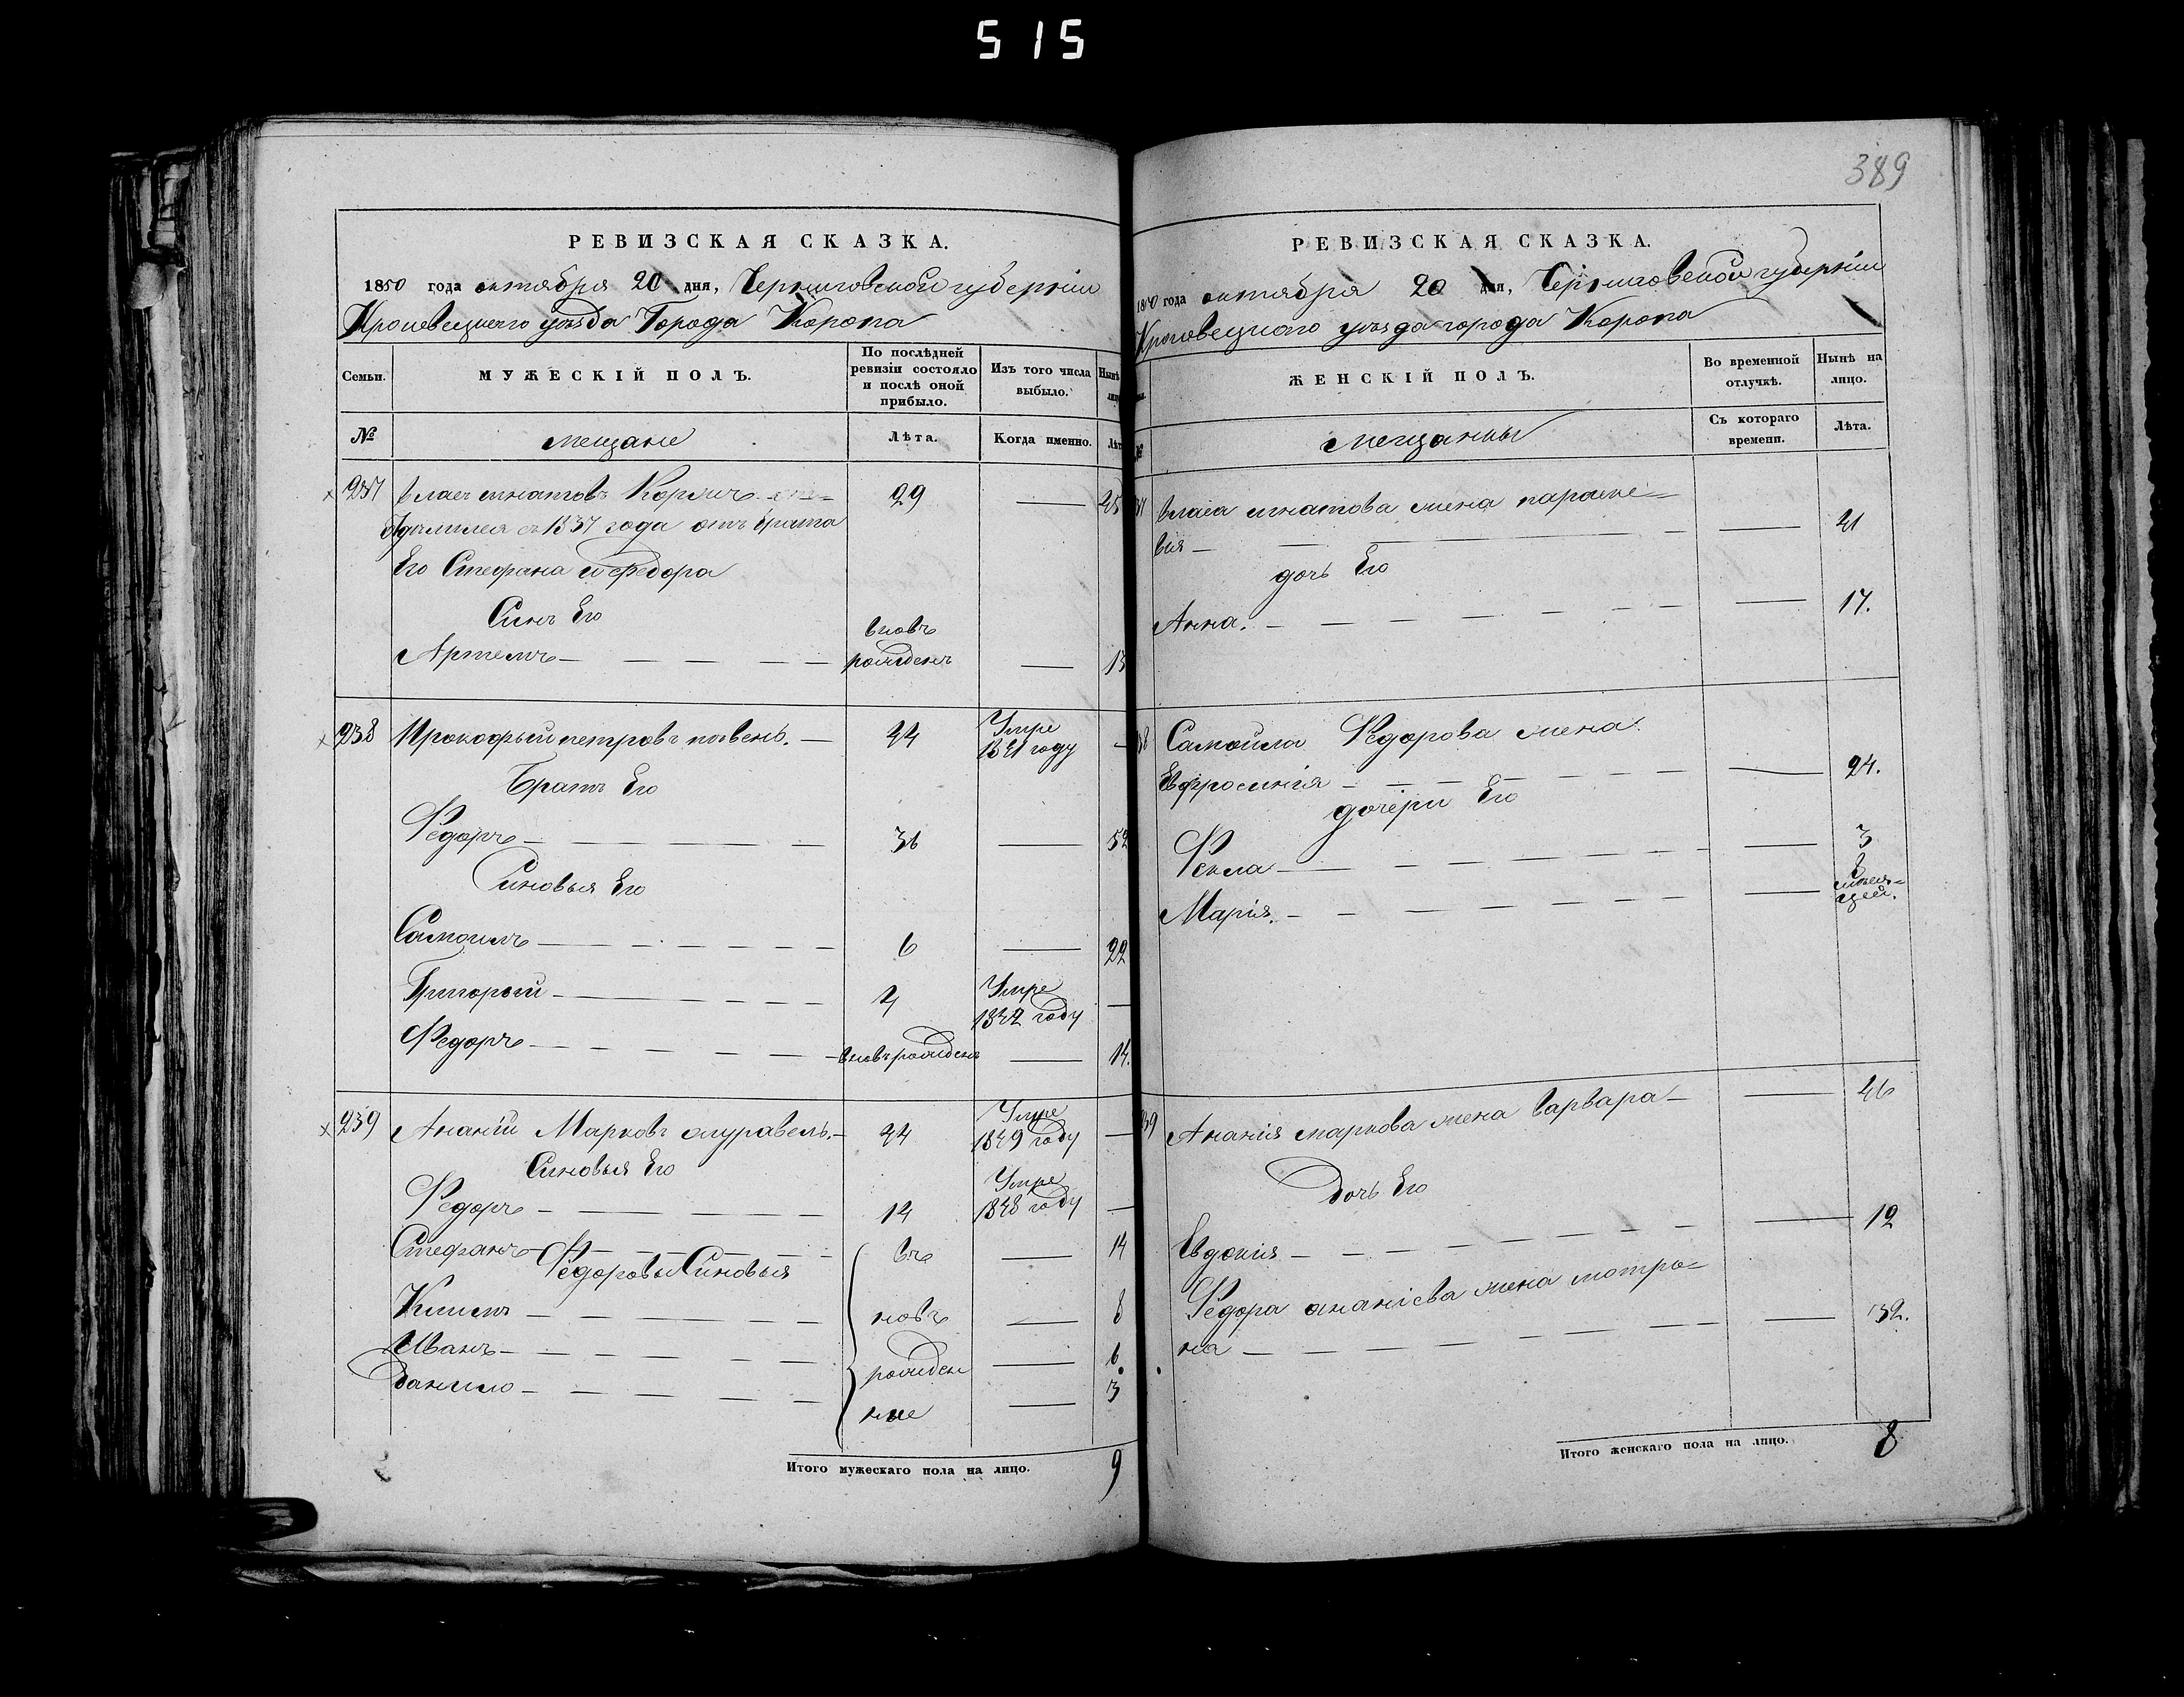 515
389
РЕВИЗСКАЯ СКАЗКА.
1850 года октября 20 дня, Черниговской губернии
Кролевецкаго уезда Города Коропа
Семьи.
МУЖЕСКІЙ ПОЛЪ.
По послѣдней ревизіи состояло и послѣ оной прибыло.
Изъ того числа выбыло.
Нынѣ
№
мещане
Лѣта.
Когда именно.
237 Влас игнатовъ 29 — 45
отделился съ 1837 года отъ брата
Его Стефана и федора
Синъ Его
вновъ
Артемъ — рожденъ — 13
238 Прокофий петровъ — 44 Умре 1841 году —
Братъ Его
Федоръ — 36 — 52
Синовья Его
Самоилъ — 6 — 22
Григорий — 4 Умре 1842 году —
Федоръ — вновъ рожденъ — 14.
239 Ананий Марковъ журавель. — 44 Умре 1849 году —
Синовья Его
Федоръ — 14 Умре 1848 году —
Стефанъ — въ — 14
Федоровы Синовья
Климъ — новъ — 8
Иванъ — 6
Данило — рожден — 3
ные
Итого мужескаго пола на лицо. 9
РЕВИЗСКАЯ СКАЗКА.
1850 года октября 20 дня, Черниговской губернии
Кролевецкаго уезда города Коропа
ЖЕНСКІЙ ПОЛЪ.
Во временной отлучкѣ.
Нынѣ на лицо.
№
мещанки
Съ котораго времени.
Лѣта.
37 Власа игнатова жена параске=
вия — — 41
дочь Его
Анна. — — 17.
38 Самоила Федорова жена
Евфросиния — — 24.
дочери Его
Фекла — — 3
Мария. — — 8 меся=
цей.
39 Анания маркова жена варвара — — 46
Дочь Его
Евдокия — — 12
Федора ананіева жена мотро=
на — — 32.
Итого женскаго пола на лицо. 8